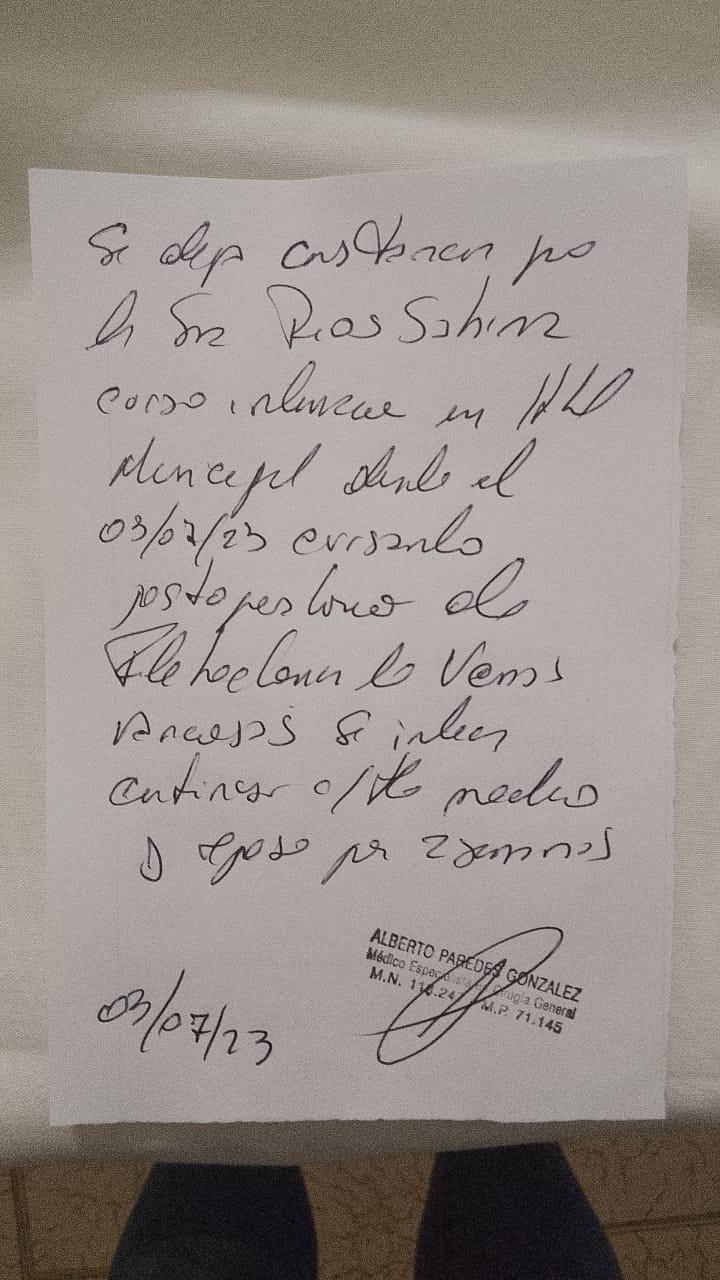 Se deja constancia po
la Sra Rios Sabina
curso internac en
Municipal desde el
03/07/23 cursando
postoperatorio de
Flebectomia de Venas
varicosas Se indica
continuar c/tto medico
y reposo por 2 semanas
ALBERTO PAREDES GONZALEZ
Médico Especialista en Cirugía General
M.N. M.P. 71.145
03/07/23